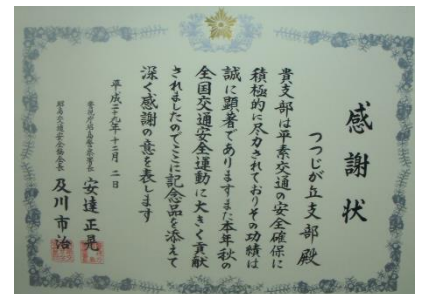 感謝状
つつじが丘支部殿
貴支部は平素交通の安全確保に
積極的に尽力されておりその功績は
誠に顕著でありますまた本年秋の
全国交通安全運動に大きく貢献
されましたのでここに記念品を添えて
深く感謝の意を表します
平成二十九年十二月二日
警視庁昭島警察署長 安達正晃
昭島交通安全協会長 及川市治